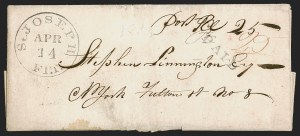 St JOSEPH
APR
14
Flor.
Port Pd 25
PAID
Stephen Linnington Esq
N York Fulton St No 8